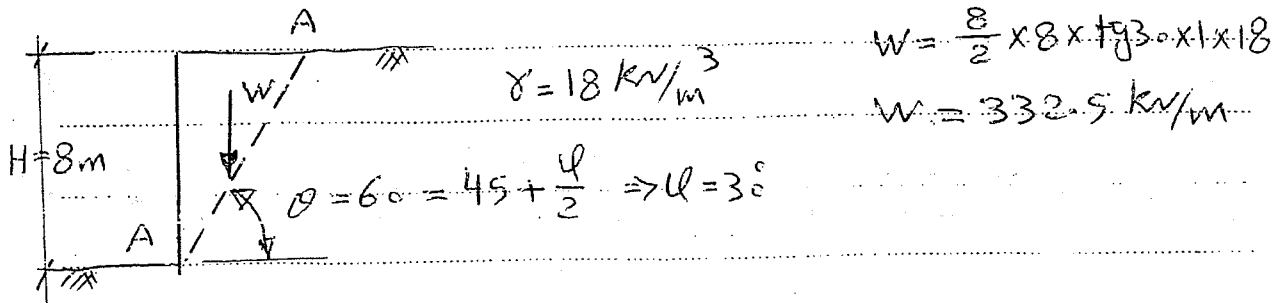 A
W = 8/2 x 8 x tg30 x 1 x 18
γ = 18 kN/m³
W
W = 332.5 kN/m
H = 8m
θ = 60 = 45 + φ/2 ⇒ φ = 30°
A